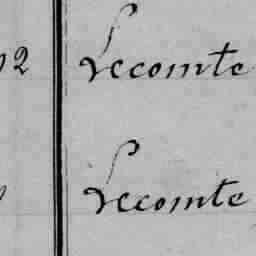 2 Lecomte
Lecomte